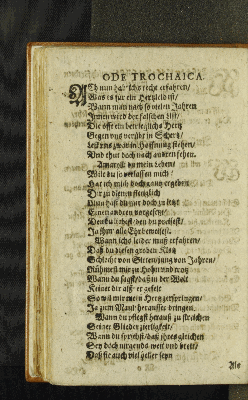 ODE TROCHAICA.
Ch nun hab ich recht erfahren/
Was es für ein Hertzleid ist/
Wann man nach so vielen Jahren
Innen wird der falschen list/
Die offt ein betrieglichs Hertz
Gegen uns verübt in Schertz/
Lest uns zwar in Hoffnung stehen/
Und thut doch nach andern sehen.
Amarill du mein Leben/
Weil du so verlassen mich
Hat ich mich doch gantz ergeben
Dir zu dienen
Nun hast du mir doch zu letzt
Einen andern vorgesetzt/
den du
Ja ihm alle Ehr beweisest.
Wann ich so leider muß erfahren/
Daß du diesen groben
Schlecht von Sitten/jung von Jahren/
Rühmest mir zu Hohn und trotz
Wann du sagst/daß in der Welt
Keiner dir als er gefelt
So wil mir mein Hertz zerspringen/
Ja zum Maul heraußer dringen.
Wann du pflegst herauß zu streichen
Seiner Glieder zierligkeit/
Wann du sprichst/daß ihres gleichen
Sey doch nirgends weit und breit/
Daß sie auch viel gelier seyn
Als